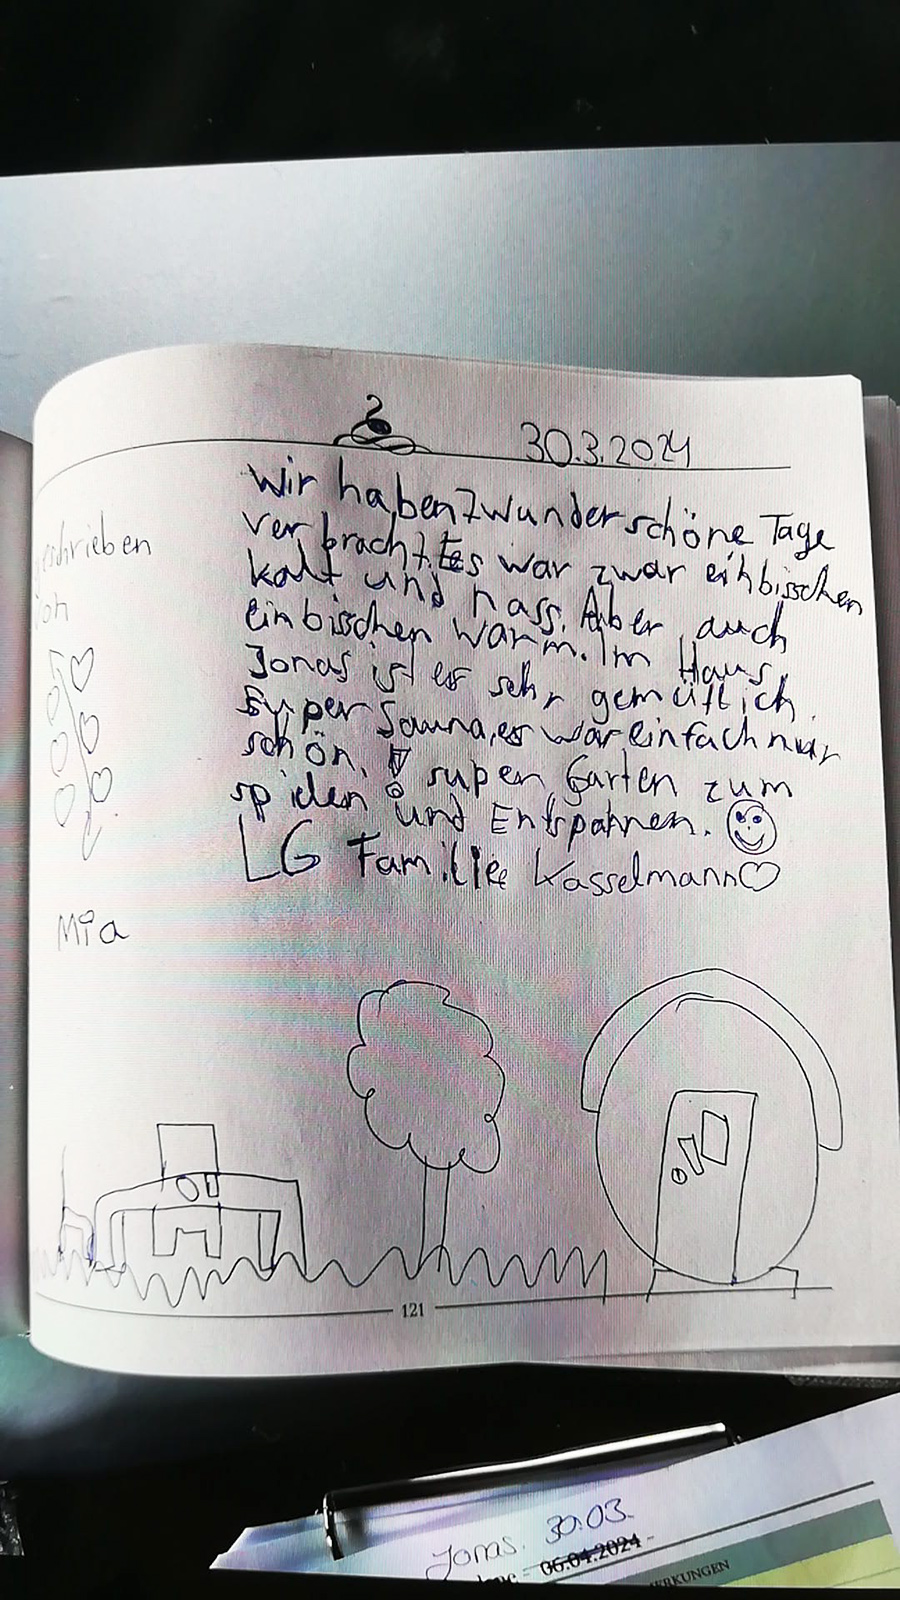 30.3.2024
Wir haben 7 wunderschöne Tage
verbracht. Es war zwar einbisschen
kalt und nass. Aber auch
einbisschen warm. Im Haus
Jonas ist es sehr gemütlich.
Super Sauna, es war einfach nur
schön. ! super Garten zum
spielen und Entspannen.
LG Familie Kasselmann
eschrieben
von
Mia
121
Jonas. 30.03.
06.04.2024 -
ERKUNGEN